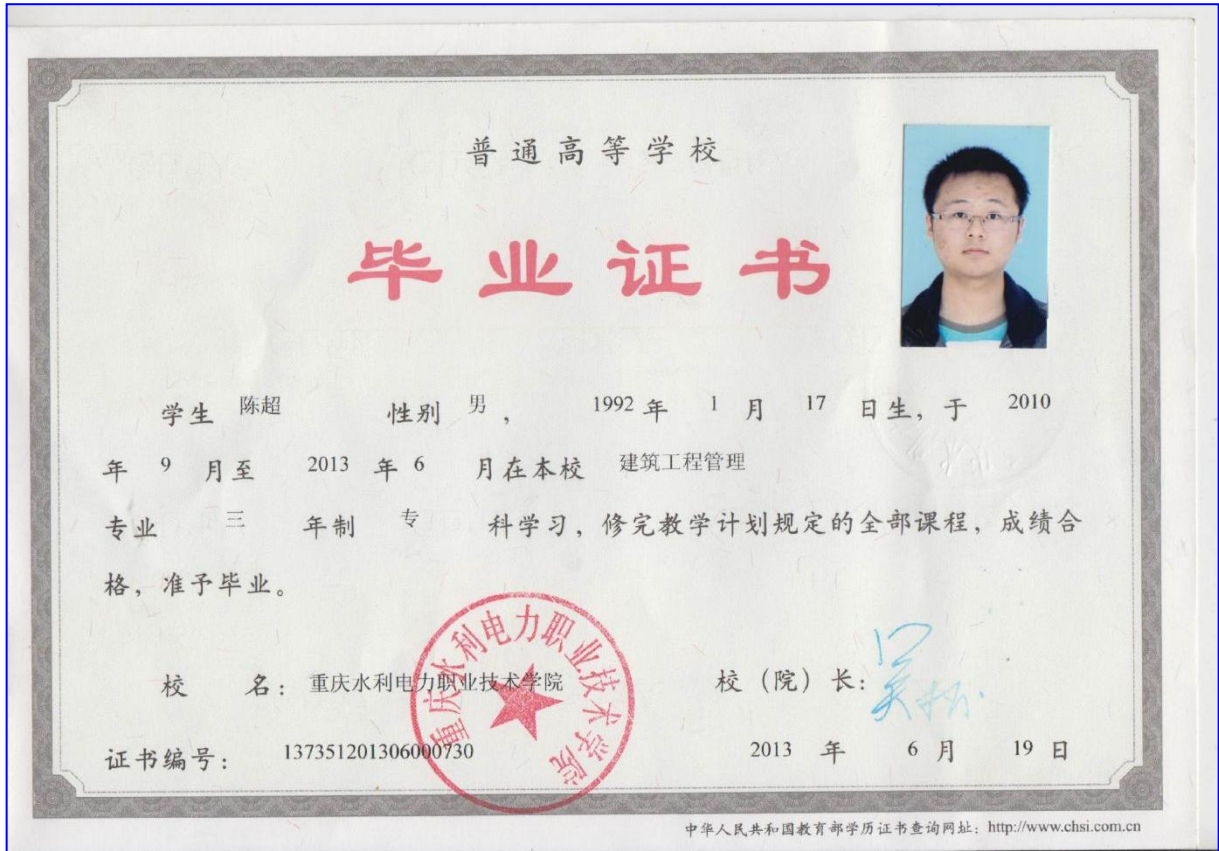 普通高等学校
毕业证书
学生 陈超 性别 男, 1992 年 1 月 17 日生, 于 2010
年 9 月至 2013 年 6 月在本校 建筑工程管理
专业 三 年制 专 科学习, 修完教学计划规定的全部课程, 成绩合
格, 准予毕业。
重庆水利电力职业技术学院
校 名: 重庆水利电力职业技术学院 校 (院) 长:
证书编号: 137351201306000730 2013 年 6 月 19 日
中华人民共和国教育部学历证书查询网址: http://www.chsi.com.cn